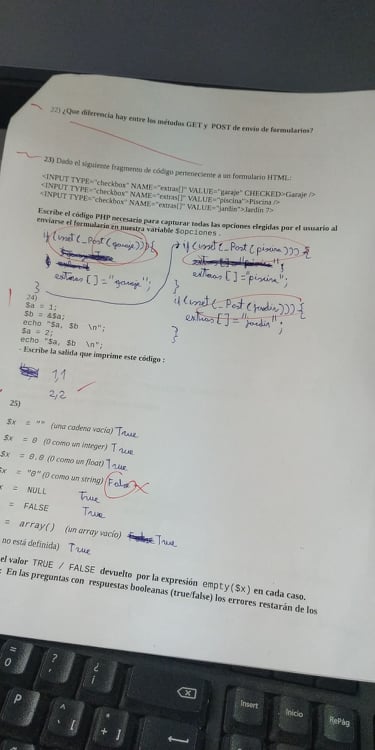 22) ¿Que diferencia hay entre los métodos GET y POST de envío de formularios?
23) Dado el siguiente fragmento de código perteneciente a un formulario HTML:
<INPUT TYPE="checkbox" NAME="extras[]" VALUE="garaje" CHECKED>Garaje />
<INPUT TYPE="checkbox" NAME="extras[]" VALUE="piscina">Piscina />
<INPUT TYPE="checkbox" NAME="extras[]" VALUE="jardin">Jardin ?>
Escribe el código PHP necesario para capturar todas las opciones elegidas por el usuario al
enviarse el formulario en nuestra variable $opciones.
if (isset (_Post (garaje))) {
extras [] = "garaje";
}
if (isset (_Post (piscina))) {
extras [] = "piscina";
}
if (isset (_Post (jardin))) {
extras [] = "jardin";
}
24)
$a = 1;
$b = &$a;
echo "$a, $b \n";
$a = 2;
echo "$a, $b \n";
- Escribe la salida que imprime este código :
1,1
2,2
25)
$x = "" (una cadena vacía) True
$x = 0 (0 como un integer) True
$x = 0.0 (0 como un float) True
$x = "0" (0 como un string) False
x = NULL True
= FALSE True
= array() (un array vacío) True
no está definida) True
el valor TRUE / FALSE devuelto por la expresión empty($x) en cada caso.
: En las preguntas con respuestas booleanas (true/false) los errores restarán de los
= 0
?
¿ ¡
P
^ ` [
* + ]
Insert
Inicio
RePág